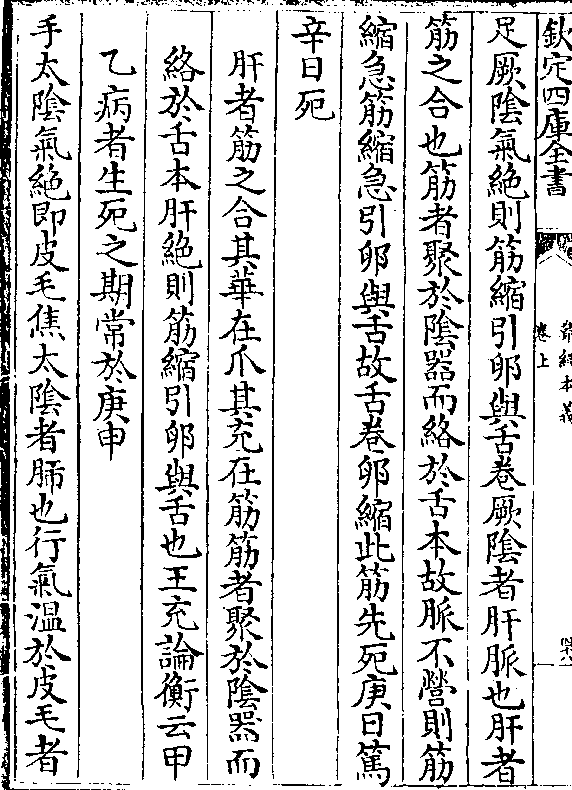 欽定四庫全書
難經本義
卷上
足厥陰氣絶則筋縮引卵與舌卷厥陰者肝脈也肝者
筋之合也筋者聚於陰器而絡於舌本故脈不營則筋
縮急筋縮急引卵與舌故舌卷卵縮此筋先死庚日篤
辛日死
肝者筋之合其華在爪其充在筋筋者聚於陰器而
絡於舌本肝絶則筋縮引卵與舌也王充論衡云甲
乙病者生死之期常於庚申
手太陰氣絶即皮毛焦太陰者肺也行氣溫於皮毛者